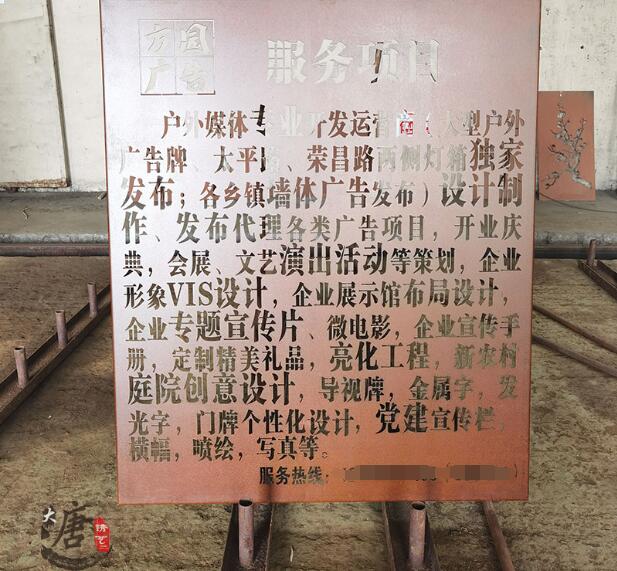 方圆
广告
服务项目
户外媒体专业开发运营商（大型户外
广告牌、太平路、荣昌路两侧灯箱独家
发布；各乡镇墙体广告发布）设计制
作、发布代理各类广告项目，开业庆
典，会展、文艺演出活动等策划，企业
形象VIS设计，企业展示馆布局设计，
企业专题宣传片、微电影，企业宣传手
册，定制精美礼品，亮化工程，新农村
庭院创意设计，导视牌，金属字，发
光字，门牌个性化设计，党建宣传栏，
横幅，喷绘，写真等。
服务热线：
大唐